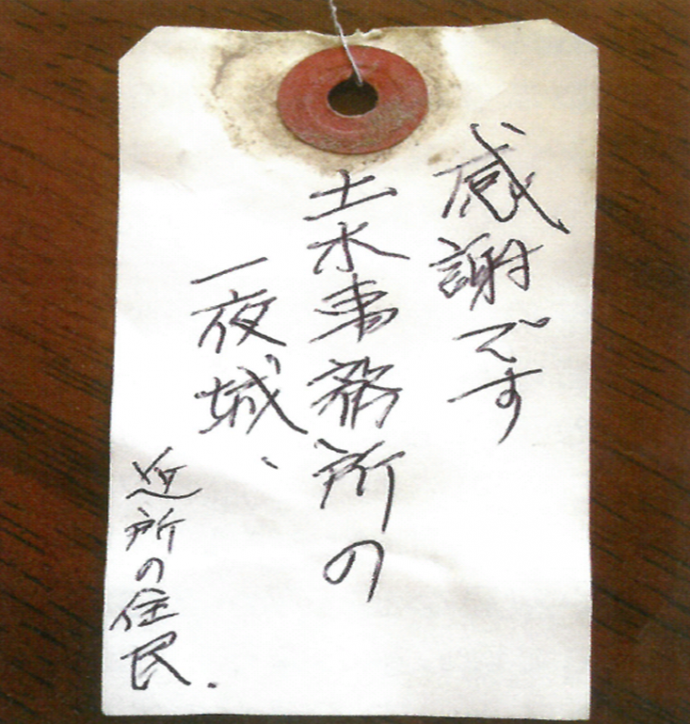 感謝です
土木事務所の
一夜城、
近所の住民.